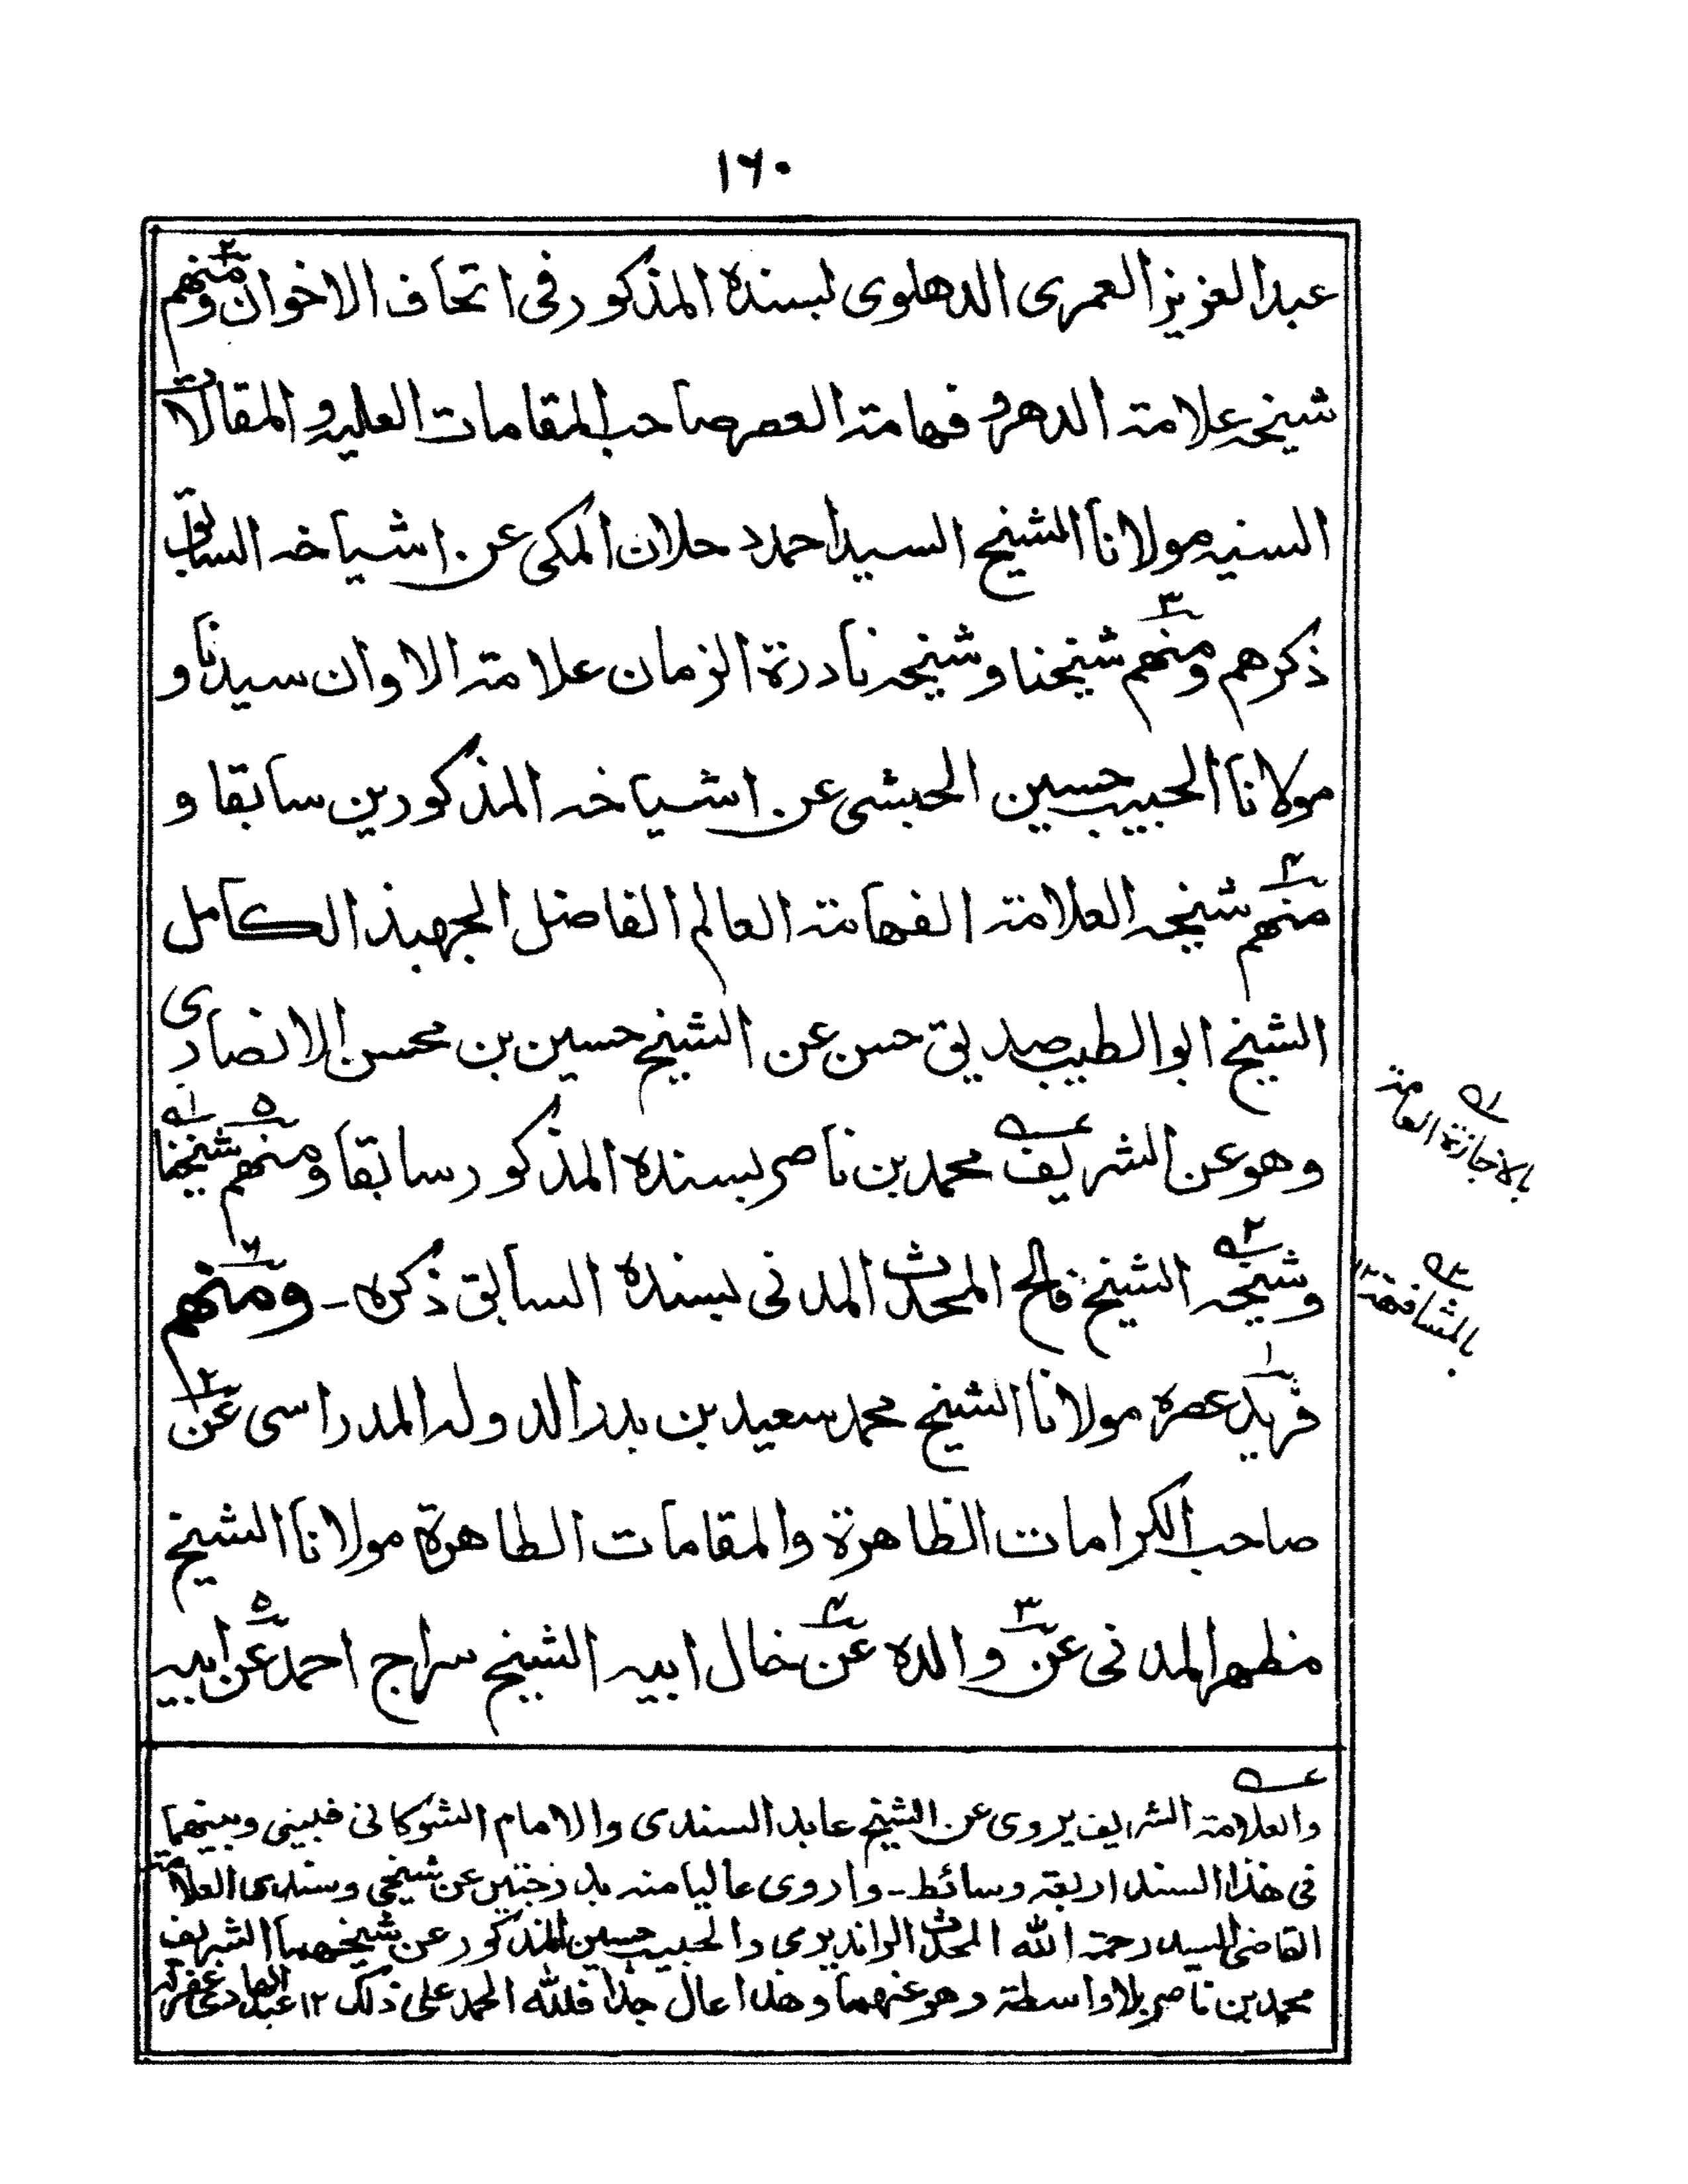 ۱۶۰
عبد العزيز العمرى الدهلوى بسنده المذكور فى اتحاف الاخوان ومنهم۲
شيخه علامة الدهر و فهامة العصر صاحب المقامات العليه و المقالات
السنيه مولانا الشيخ السيد احمد دحلان المكى عن اشياخه السابق
ذكرهم ومنهم۳ شيخنا وشيخه نادرة الزمان علامة الاوان سيدنا و
مولانا الحبيب حسين الحبشى عن اشياخه المذكورين سابقا و
منهم۴ شيخه العلامة الفهامة العالم الفاضل الجهبذ الكامل
الشيخ ابو الطيب صديق حسن عن الشيخ حسين بن محسن الانصارى
وهو عن الشريف عه محمد بن ناصر بسنده المذكور سابقا ومنهم۵ شيخنا۱ه
وشيخه۲ه الشيخ فالح المحدث المدنى بسنده السابق ذكره - ومنهم۶
فريد۱ عصره مولانا الشيخ محمد سعيد بن بدر الدوله المدراسى عن۲
صاحب الكرامات الظاهرة والمقامات الطاهرة مولانا الشيخ
مظهر المدنى عن۳ والده عن۴ خال ابيه الشيخ سراج احمد عن۵ ابيه
۱ه بالاجازة العامة
۲ه بالمشافهة ۱۲
عه والعلامة الشريف يروى عن الشيخ عابد السندى والامام الشوكانى فبينى وبينهما
فى هذا السند اربعة وسائط - واروى عاليا منه بدرجتين عن شيخى وسندى العلامة
القاضى السيد رحمة الله المحدث الرانديرى والحبيب حسين المذكور عن شيخهما الشريف
محمد بن ناصر بلا واسطة وهو عنهما وهذا عال جدا فلله الحمد على ذلك ۱۲ عبد الهادى غفر له